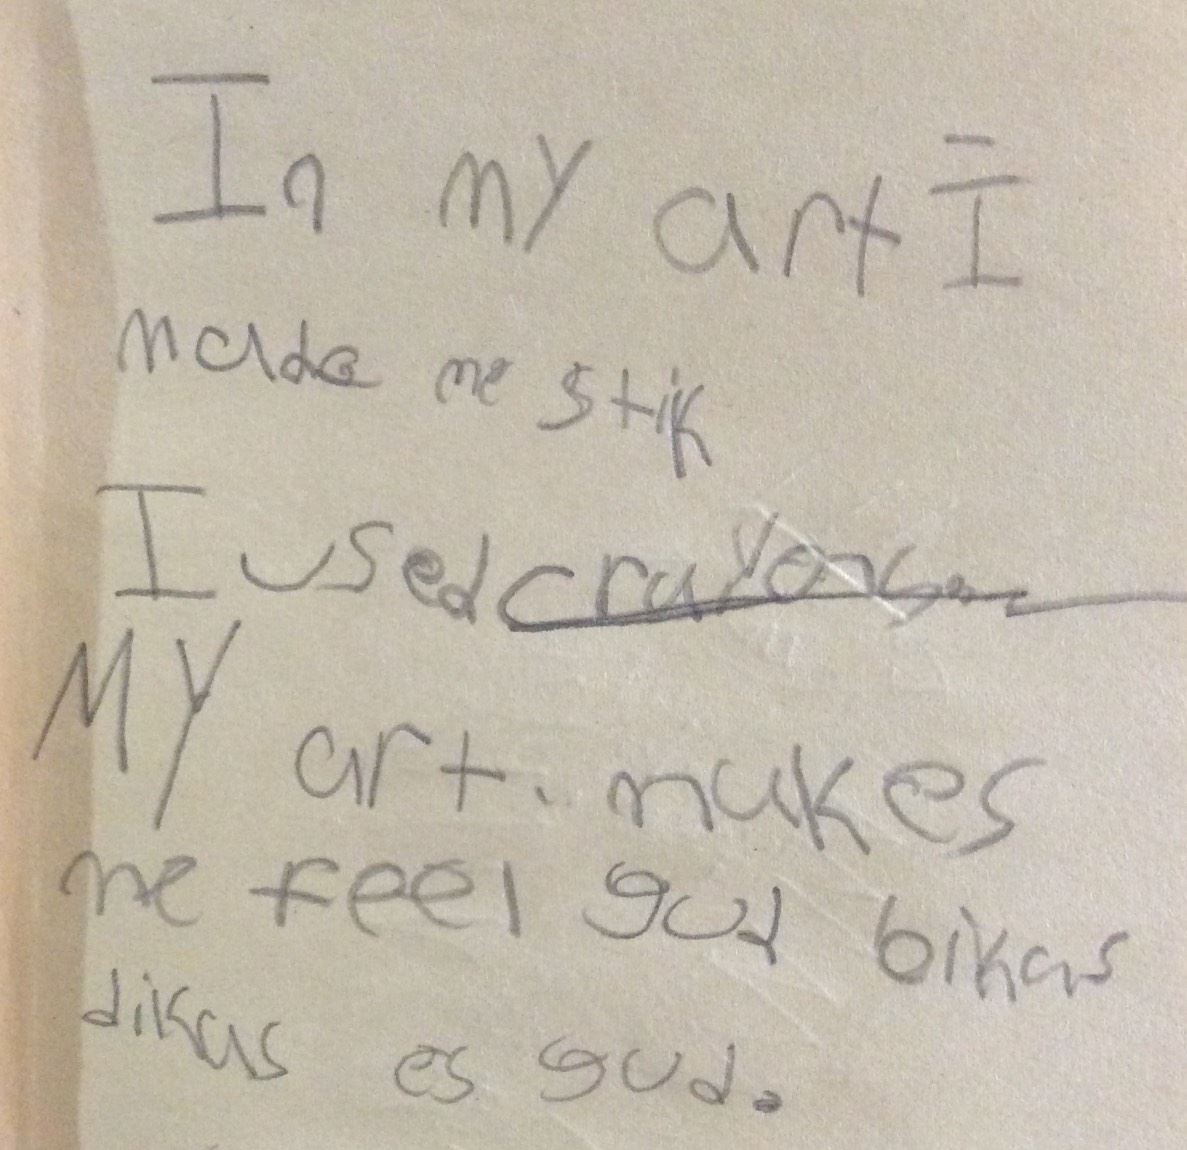 In my art I
made me stik
I used crayons
MY art. makes
me feel gud bikas
dikas es gud.